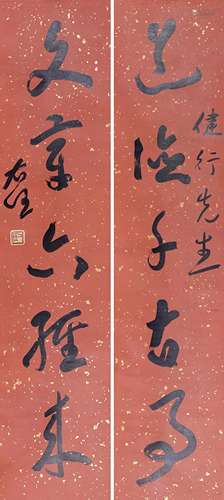 健行先生
道德千古事
文章六經来
右任